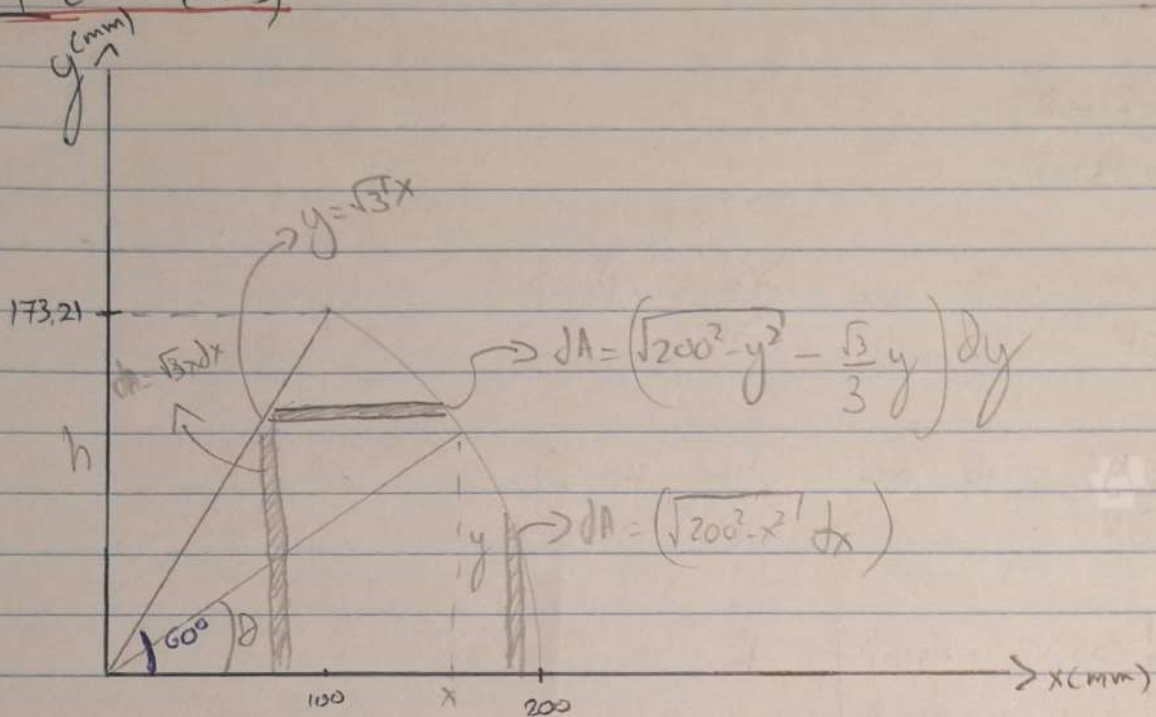 y(mm)
y=√3x
173,21
dA=√3xdx
dA=(√200²-y² - √3/3 y)dy
h
y
dA=(√200²-x² dx)
60°
θ
100
x
200
x(mm)